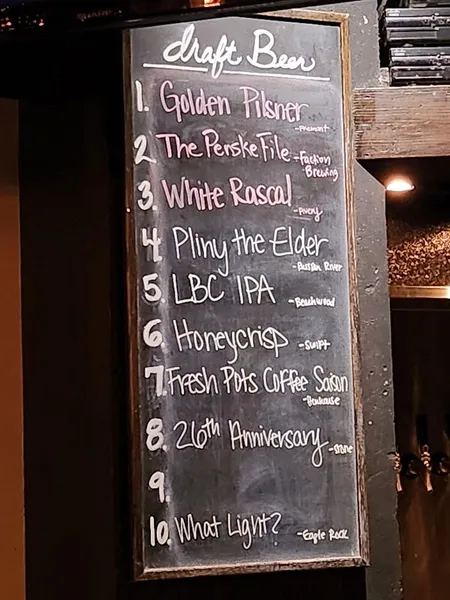 draft Beer
1. Golden Pilsner
-Fremont
2 The Perske File -Faction
Brewing
3. White Rascal
-Avery
4 Pliny the Elder
-Russian River
5. LBC IPA -Beachwood
6. Honeycrisp -Swift
7. Fresh Pots Coffee Saison
-Henhouse
8. 26th Anniversary -Stone
9.
10. What Light? -Eagle Rock